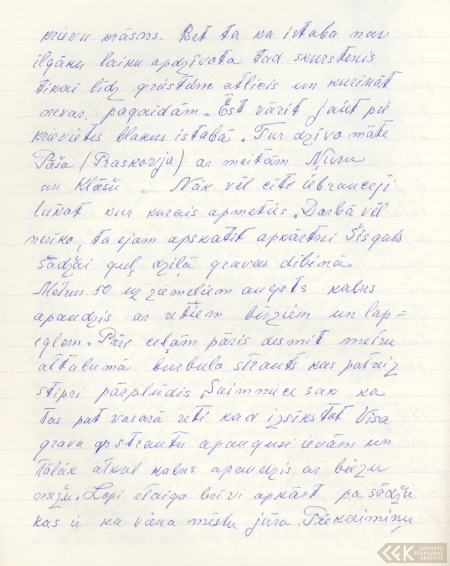 krievu krāsns. Bet ta ka istaba nav
ilgāku laiku apdzivota tad skurstenis
tikai lidz griestām atlicis un kurināt
nevar pagaidām. Ēst vārit jāiet pie
krievietes blakus istabā. Tur dzivo māte
Paša (Praskovja) ar meitām Ņuru
un Klāšu. Nāk vēl citi iebraucēji
lūkot kur kurais apmeties. Darbā vēl
neriko, ta ejam apskatit apkārtni Šis gals
sādžai guļ dziļā gravas dibinā
Metrus 50 uz ziemeļiem augsts kalns
apaudzis ar retiem bērziem un lap=
eglem. Pāri ceļām pāris desmit metru
attālumā burbuļo strauts kas patreiz
stipri pārplūdis, Saimniece sak ka
tas pat vasarā reti kad izsikstot Visa
grava ap strautu apaugusi ievām un
tālāk atkal kalns apaudzis ar bērzu
mežu. Lopi staiga brivi apkārt pa sādžu
kas ir ka viena mēslu jūra. Piekaimiņu
LATVIEŠU FOLKLORAS KRĀTUVE